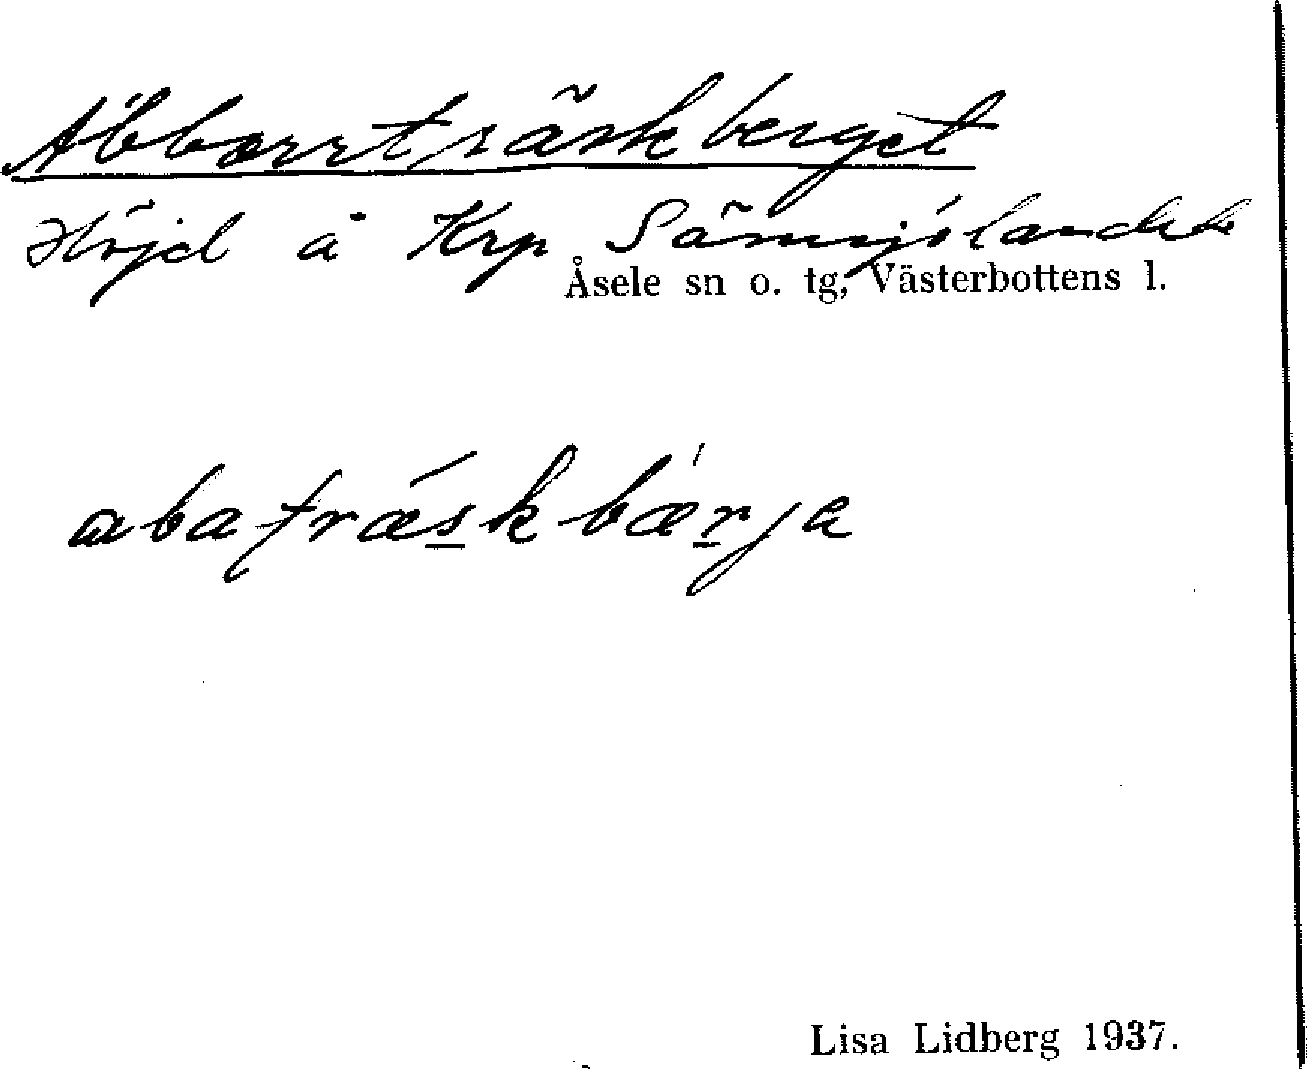 Abborrträskberget
Höjd å Krp
Åsele sn o. tg, Västerbottens l.
abatræskbærja
Lisa Lidberg 1937.